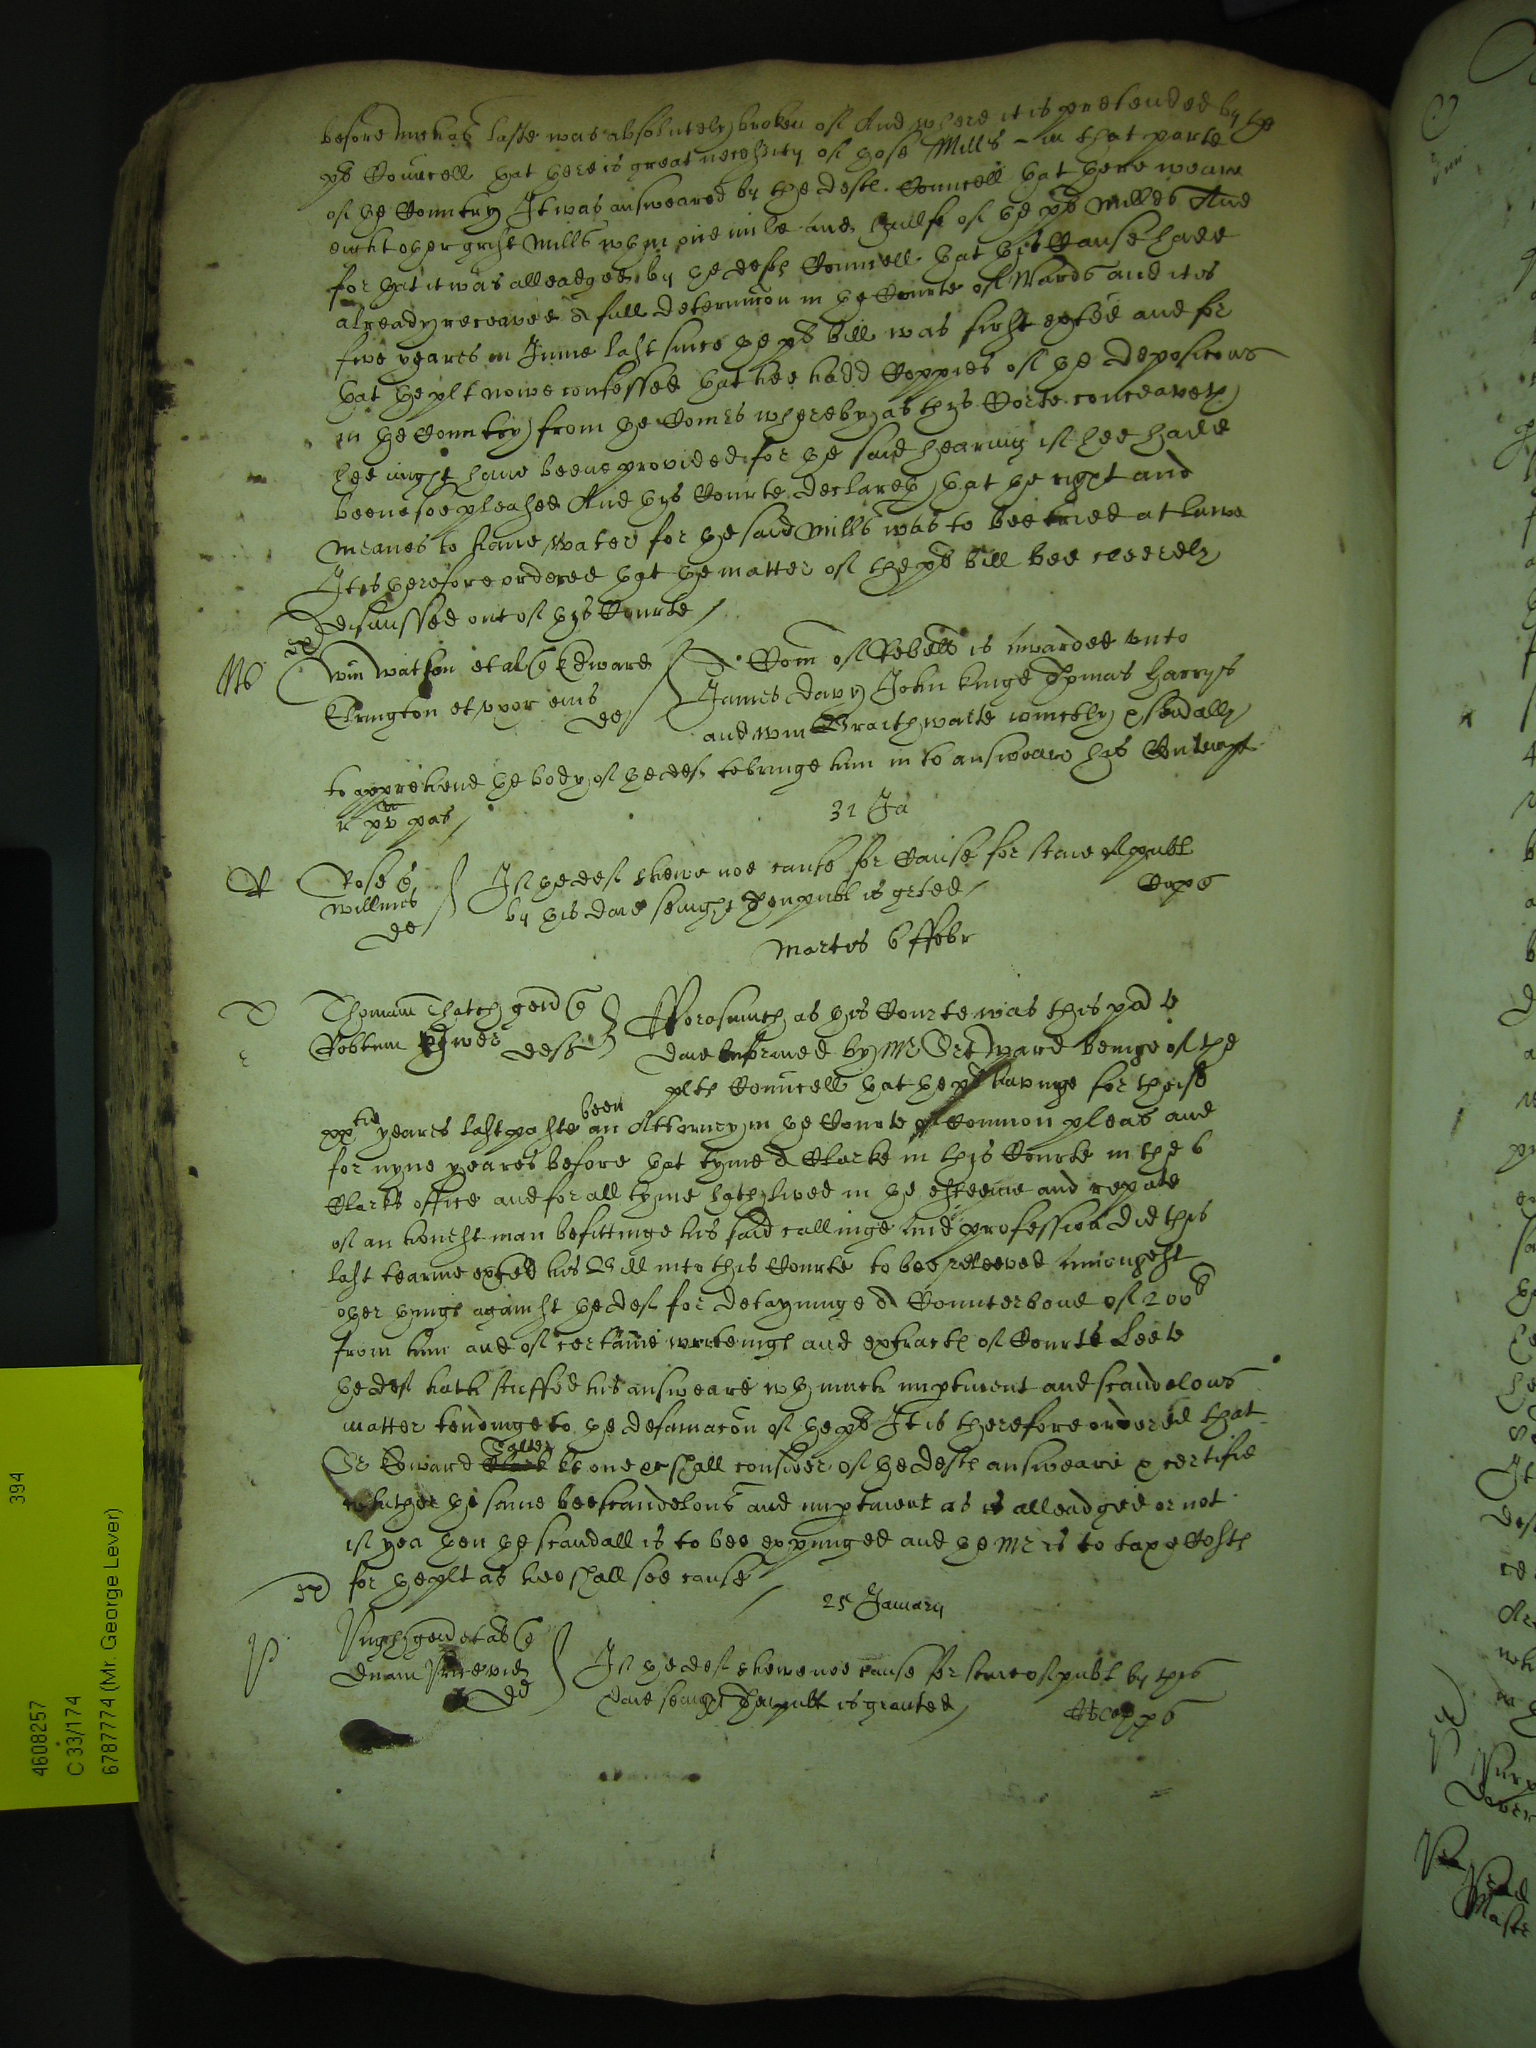 before michas laste was absolutely broken of And where it is pretended by the
pls Councell that there is great necessity of those Mills in that parte
of the Countrey It was answeared by the defts Councell that there weare
eight other grist mills wthin one mile and halfe of the pls milles And
for that it was alleadged by the defts Councell that this Cause hath
already receaved a full determincon in the Courte of Wards and it is
five yeares in June last since the pls bill was first exhibd and for
that the plt nowe confessed that hee hadd Coppies of the deposicons
in the Countrey from the Comrs whereby as this Corte conceaveth
hee might have beene provided for the said hearing if hee hadd
beene soe pleased And this Courte declareth that the right and
meanes to have water for the said mills was to bee tried at lawe
It is therefore ordered that the matter of the pls bill bee cleerely
dismissed out of this Courte
Wm Watson et al Edward
Errington et uxor eius
de
A Com of Rebell is awarded unto
James Davy John Kinge Thomas Harryes
and Wm Braithwaite iointly & sevally
to apprehend the body of the deft to bringe him in to answeare his Contempt
31 Ja
Rose
Willms
de
If the deft shewe noe cause for Cause for staie of publ
by this daie sevnight then publ is grted
Copes
Martis 6 ffebr
Thomam Thatch gen
Robtum
deft
fforasmuch as this Courte was this pnte
daie informed by Mr Ortdward beinge of the
plts Councell that the pl havinge for theise
xxtie yeares last paste been an Attorney in the Courte of Common pleas and
for nyne yeares before that tyme a Clarke in this Courte in the 6
Clarks office and for all tyme hath lived in the esteeme and repute
of an honest man befittinge his said callinge and profession did this
last tearme exhibd his Bill into this Courte to bee releeved amongest
other things against the deft for detayninge a Counterbond of 200l
from him and of certaine writeings and extracts of Courte Leete
the deft hath stuffed his answeare wth much imptinent and scandelous
matter tendinge to the defamacon of the pl It is therefore ordered that
Sr Edward Salter kt one &c shall consider of the defts answeare & certifie
whether the same bee scandelous and imptinent as is alleadged or not
if yea then the scandall is to bee expunged and the Mr is to taxe Costs
for the plt as hee shall see cause
25 January
Pugh gen et al
If the deft shewe noe cause for staie of publ by this
daie sevnight then publ is graunted
394
4608257
C 33/174
6787774 (Mr. George Lever)